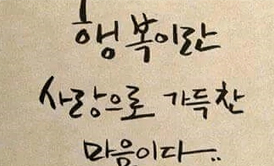 행복이란
사랑으로 가득찬
마음이다..